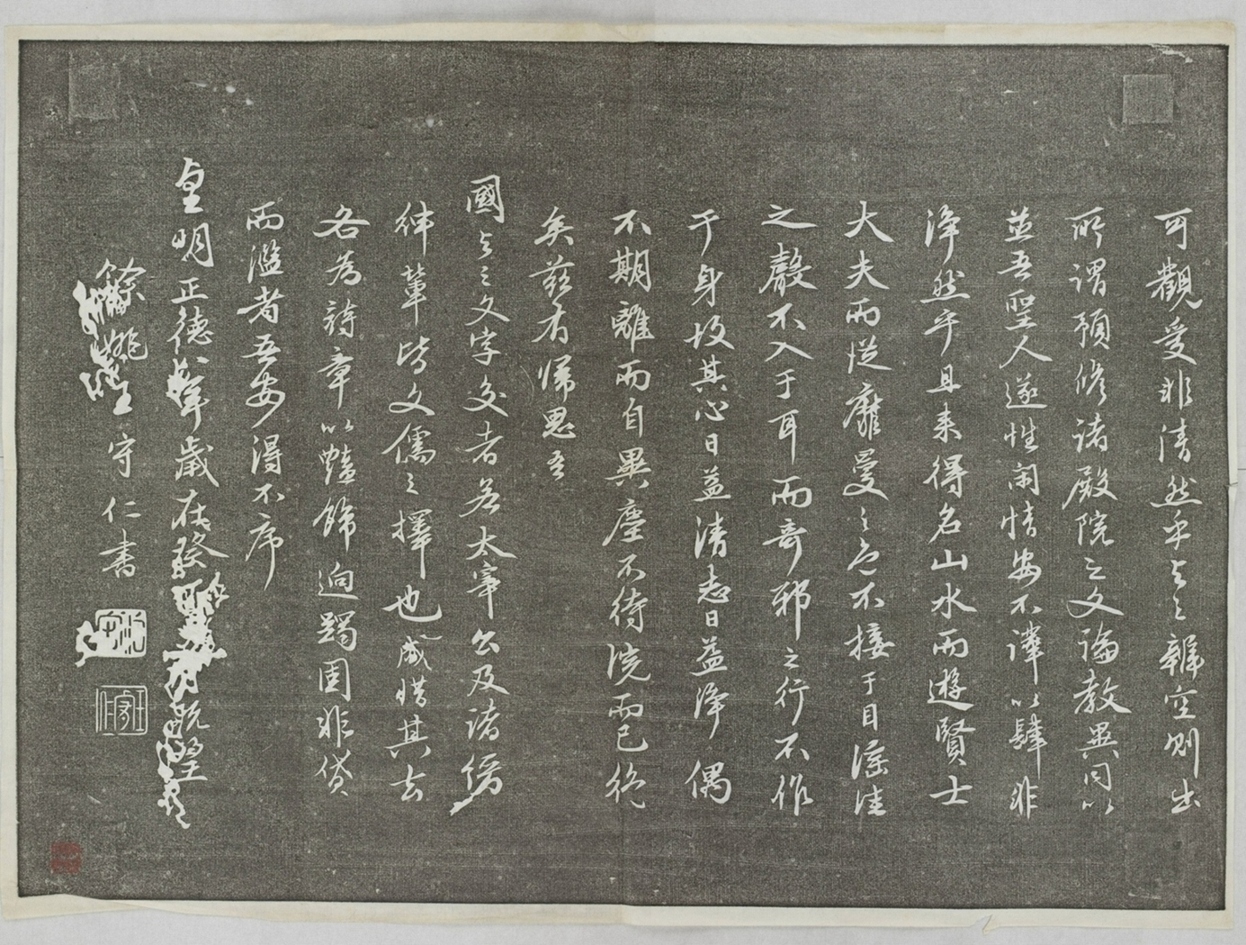 可觀愛非清然乎與之辨空則出
所謂預修諸殿院之文論教異同以
並吾聖人遂性閑情安不譁以肆非
淨然乎且來得名山水而遊賢士
大夫而從靡曼之色不接于目淫哇
之聲不入于耳而奇邪之行不作
于身故其心日益清志日益淨偶
不期離而自異塵不待浣而已絕
矣茲有歸思吾
國與之文字交者若太宰公及諸縉
紳輩皆文儒之擇也咸惜其去
各為詩章以豔餙迥躅固非貸
而濫者吾安得不序
皇明正德八年歲在癸酉五月既望
餘姚王守仁書